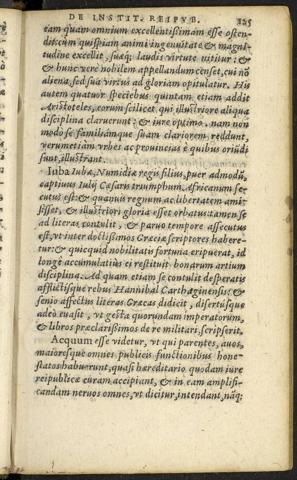 DE INSTIT. REIPVB. 125
eam quam omnium excellentissimam esse osten-
dit: cùm quispiam animi ingenuitate & magni-
tudine excellit, suæq; laudis virtute nititur: &
& hunc verè nobilem appellandum censet, cui nõ
aliena, sed suâ virtus ad gloriam opitulatur. His
autem quatuor speciebus quintam etiam addit
Aristoteles, eorum scilicet, qui illustriore aliqua
disciplina claruerunt: & iure optimo. nam non
modo se familiamque suam clariorem reddunt,
verumetiam vrbes ac prouincias è quibus oriūdi
sunt, illustrant.
Iuba Iubæ, Numidiæ regis filius, puer admodũ,
captiuus Iulij Cæsaris triumphum Africanum se-
cutus est: & quanuis regnum ac libertatem ami-
sisset, & illustriori gloria esset orbatus, tamen se
ad literas contulit, & paruo tempore assecutus
est, vt inter doctissimos Græciæ scriptores habere-
tur: & quicquid nobilitatis fortuna eripuerat, id
longè accumulatius ei restituit bonarum artium
disciplina. Ad quam etiam se contulit desperatis
afflictisque rebus Hannibal Carthaginensis: &
senio affectus literas Græcas didicit, disertúsque
adeò euasit, vt gesta quorundam imperatorum,
& libros præclarissimos de re militari, scripserit.
Acquum esse videtur, vt qui parentes, auos,
maioresque omnes publicis functionibus hone-
statos habuerunt, quasi hæreditario quodam iure
reipublicæ curam accipiant, & in eam amplifi-
candam neruos omnes, vt dicitur, intendant, nãq;